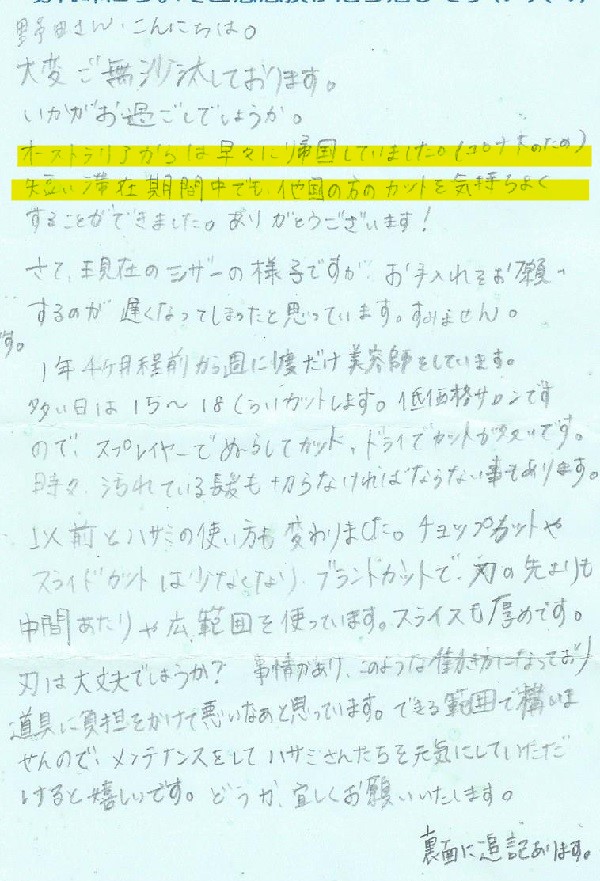 野田さん、こんにちは。
大変ご無沙汰しております。
いかがお過ごしでしょうか。
オーストラリアからは早々に帰国していました。(コロナ禍のため)
短い滞在期間中でも、他国の方のカットを気持ちよく
することができました。ありがとうございます!
さて、現在のシザーの様子ですが、お手入れをお願い
するのが遅くなってしまったと思っています。すみません。
す。
1年4ヶ月程前から週に1度だけ美容師をしています。
多い日は15〜18くらいカットします。低価格サロンです
ので、スプレイヤーでぬらしてカット、ドライでカットが多いです。
時々、汚れている髪も切らなければならない事もあります。
以前とハサミの使い方も変わりました。チョップカットや
スライドカットは少なくなり、ブラントカットで、刃の先よりも
中間あたりや広範囲を使っています。スライスも厚めです。
刃は大丈夫でしょうか? 事情があり、このような働き方になっており
道具に負担をかけて悪いなあと思っています。できる範囲で構いま
せんので、メンテナンスをしてハサミさんたちを元気にしていただ
けると嬉しいです。どうか、宜しくお願いいたします。
裏面に追記あります。